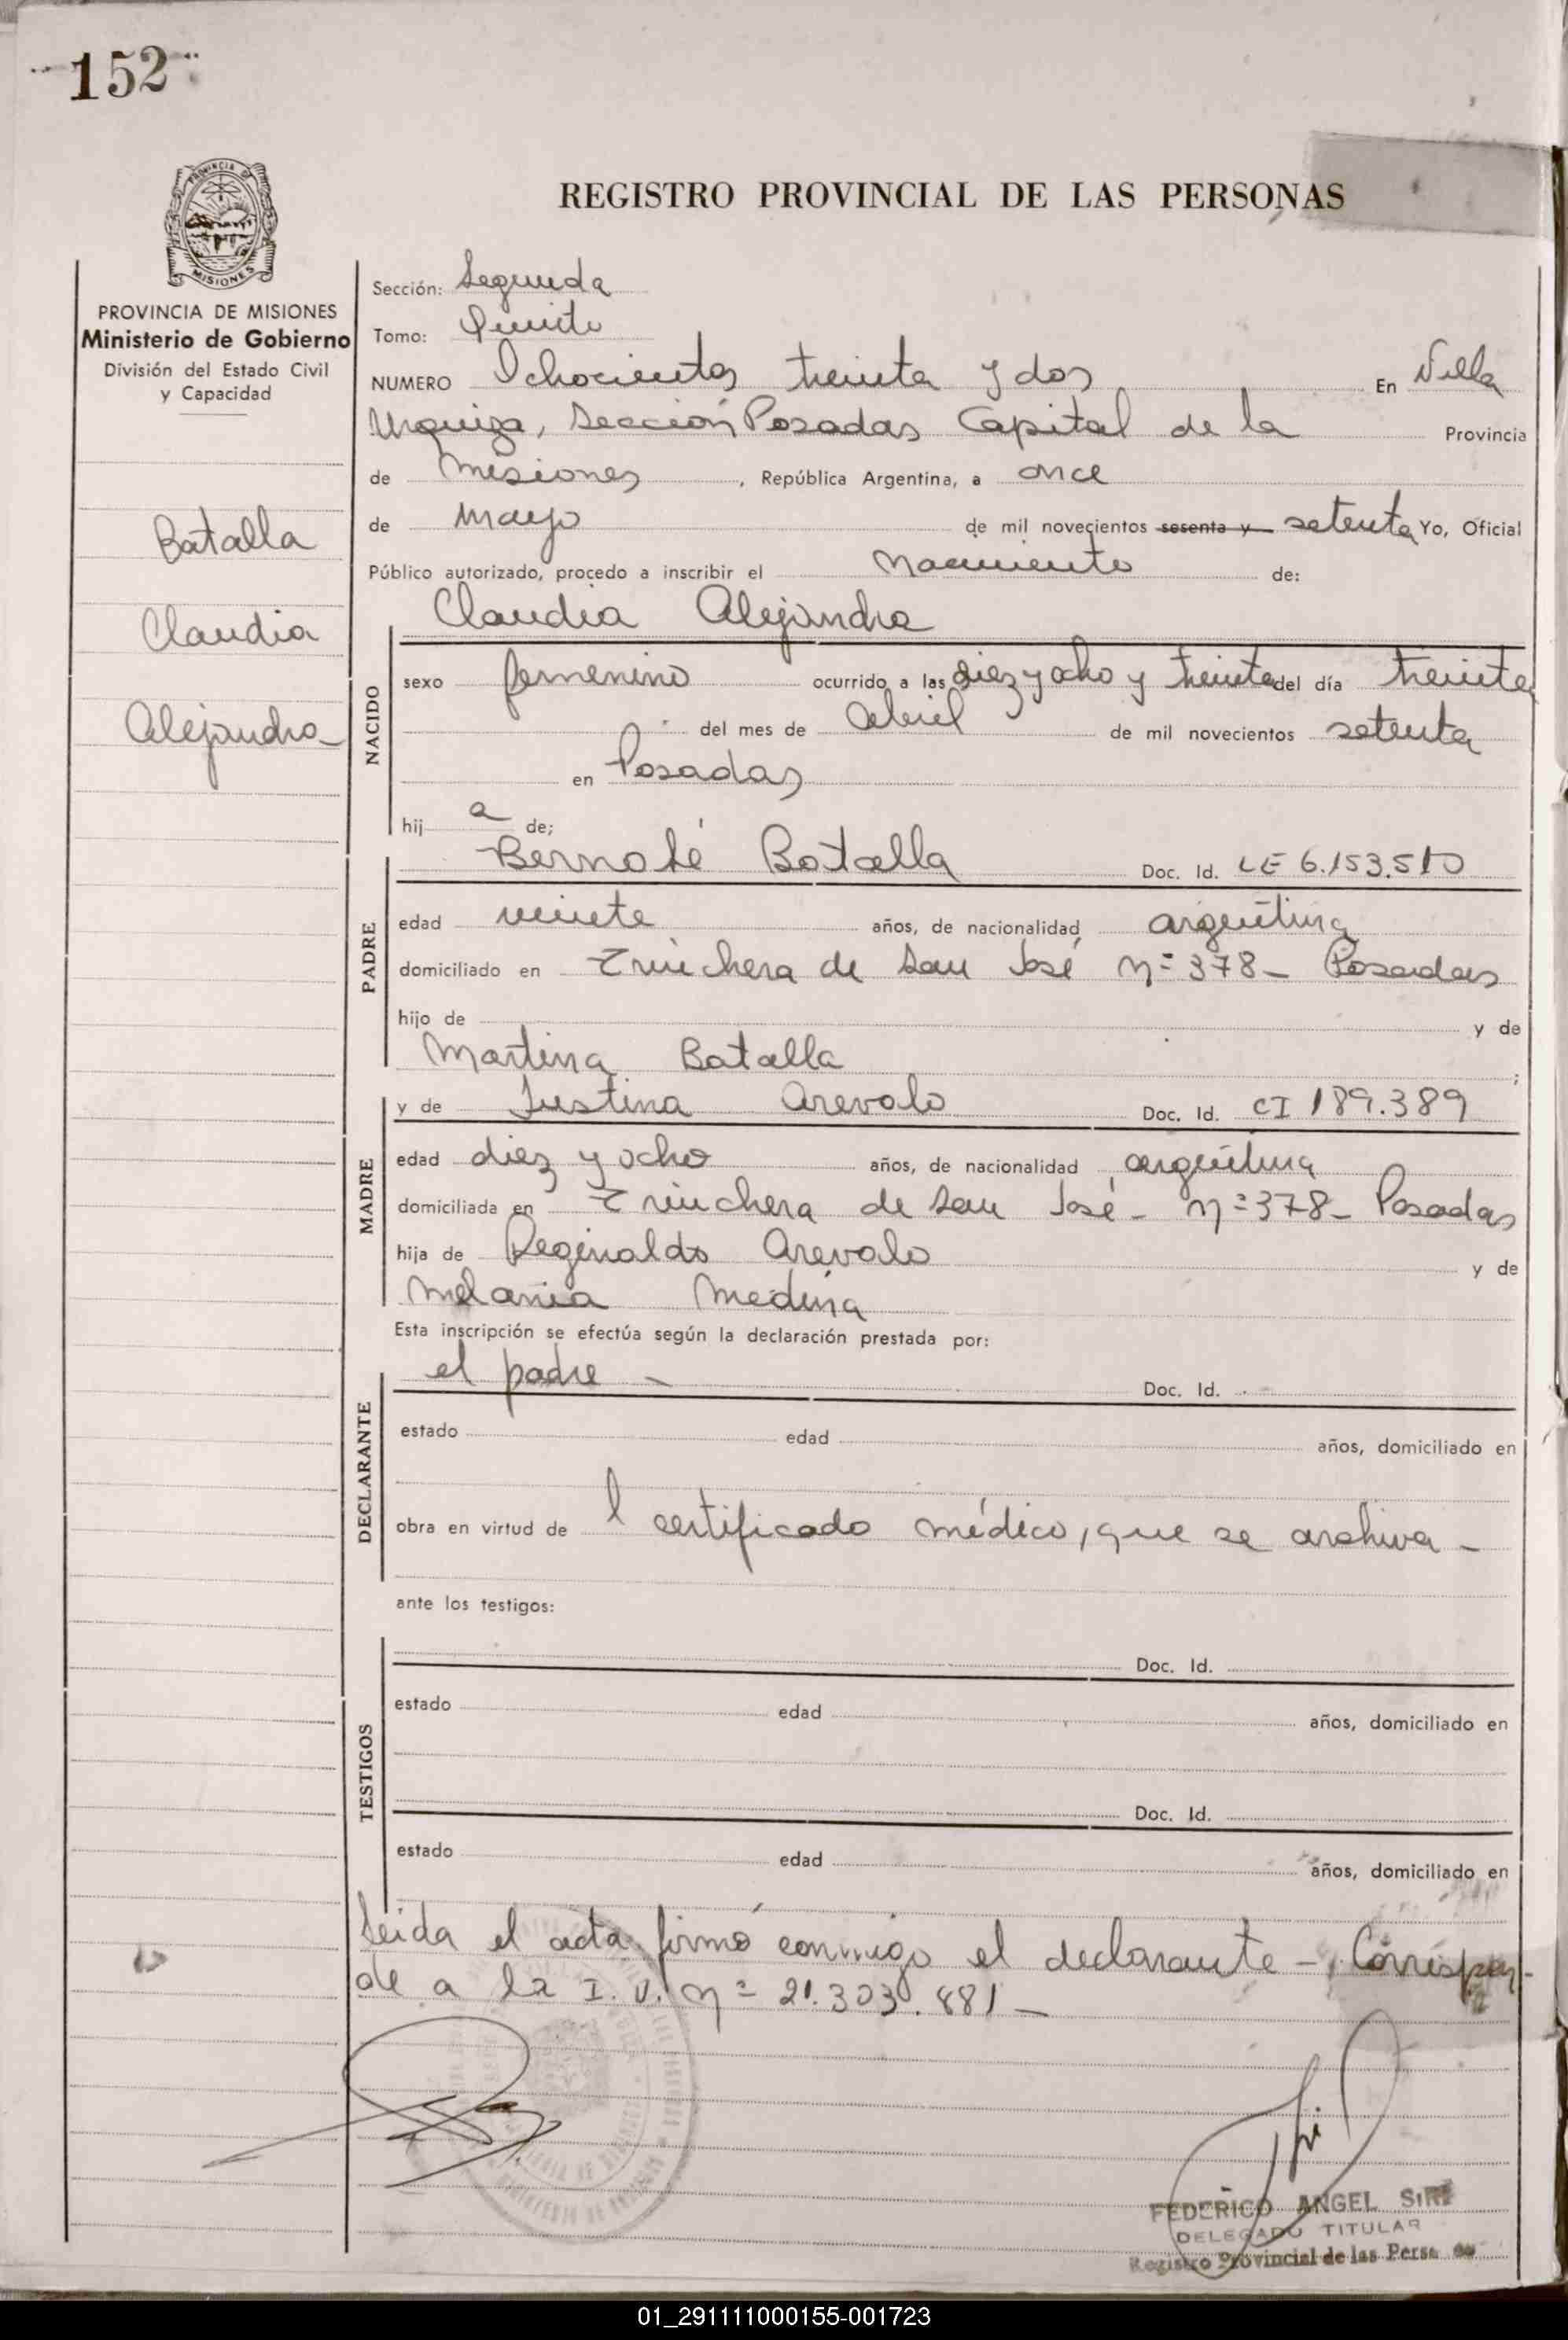 152
REGISTRO PROVINCIAL DE LAS PERSONAS
PROVINCIA DE MISIONES
Ministerio de Gobierno
División del Estado Civil
y Capacidad
Batalla
Claudia
Alejandra
Sección: Segunda
Tomo: Quinto
NUMERO Ochocientos treinta y dos En Villa
Urquiza, Sección Posadas Capital de la Provincia
de Misiones, República Argentina, a once
de mayo de mil novecientos sesenta y setenta Yo, Oficial
Público autorizado, procedo a inscribir el Nacimiento de:
Claudia Alejandra
NACIDO
sexo femenino ocurrido a las diez y ocho y treinta del día treinta
del mes de abril de mil novecientos setenta
en Posadas
hij a de;
Bernabé Batalla Doc. Id. LE 6.153.510
PADRE
edad veinte años, de nacionalidad argentina
domiciliado en Trinchera de San José nº 378 - Posadas
hijo de y de
Martina Batalla ;
y de Justina Arevalo Doc. Id. CI 189.389
MADRE
edad diez y ocho años, de nacionalidad argentina
domiciliada en Trinchera de San José - nº 378 - Posadas
hija de Reginaldo Arevalo y de
Melania Medina
Esta inscripción se efectúa según la declaración prestada por:
el padre - Doc. Id.
DECLARANTE
estado edad años, domiciliado en
obra en virtud de l certificado médico, que se archiva -
ante los testigos:
Doc. Id.
TESTIGOS
estado edad años, domiciliado en
Doc. Id.
estado edad años, domiciliado en
Leida el acta, firmó conmigo el declarante - Correspon-
de a la I.U. nº 21.303.881 -
FEDERICO ANGEL SIRE
DELEGADO TITULAR
Registro Provincial de las Perso
01_291111000155-001723